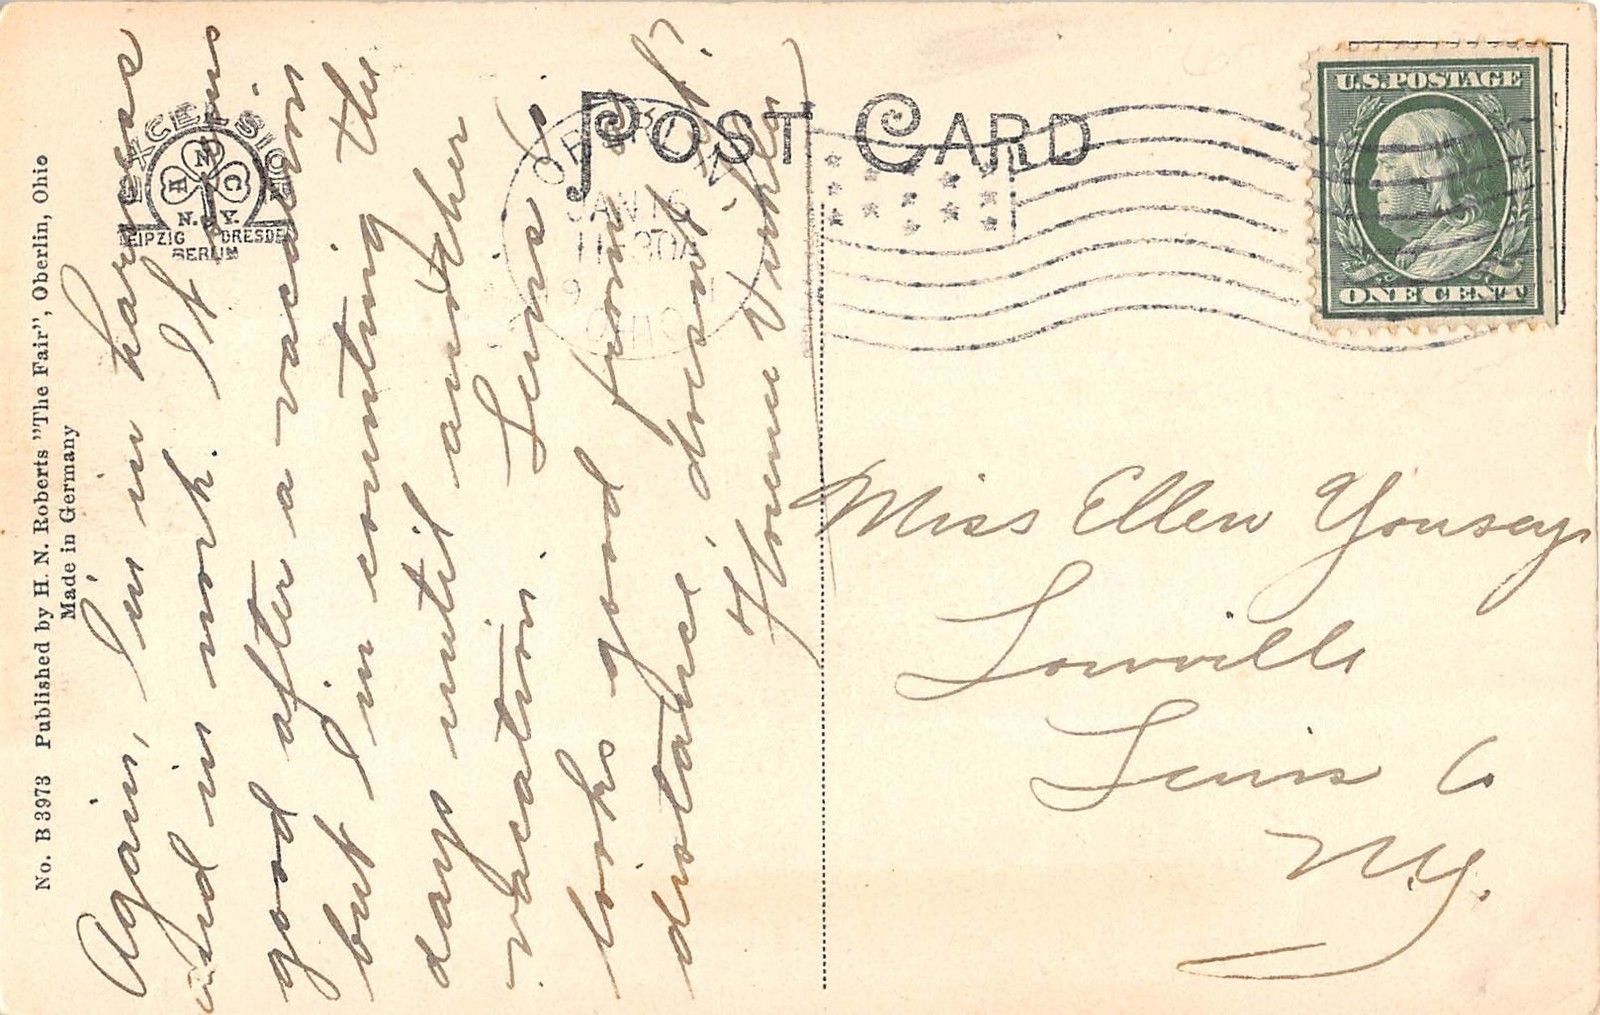 No. B 3973 Published by H. N. Roberts "The Fair", Oberlin, Ohio
Made in Germany
EXCELSIOR
H N C
N.Y.
LEIPZIG DRESDEN
BERLIN
POST CARD
OBERLIN
JAN 16
11-30A
OHIO
U.S. POSTAGE
ONE CENT
Again, I'm in harness
and in work. It seems
good after a vacation
but I'm counting the
days until another
vacation. Lewis is
looks good from a
distance, doesn't it?
Homer
Miss Ellen Yousey
Lowville
Lewis Co
N.Y.